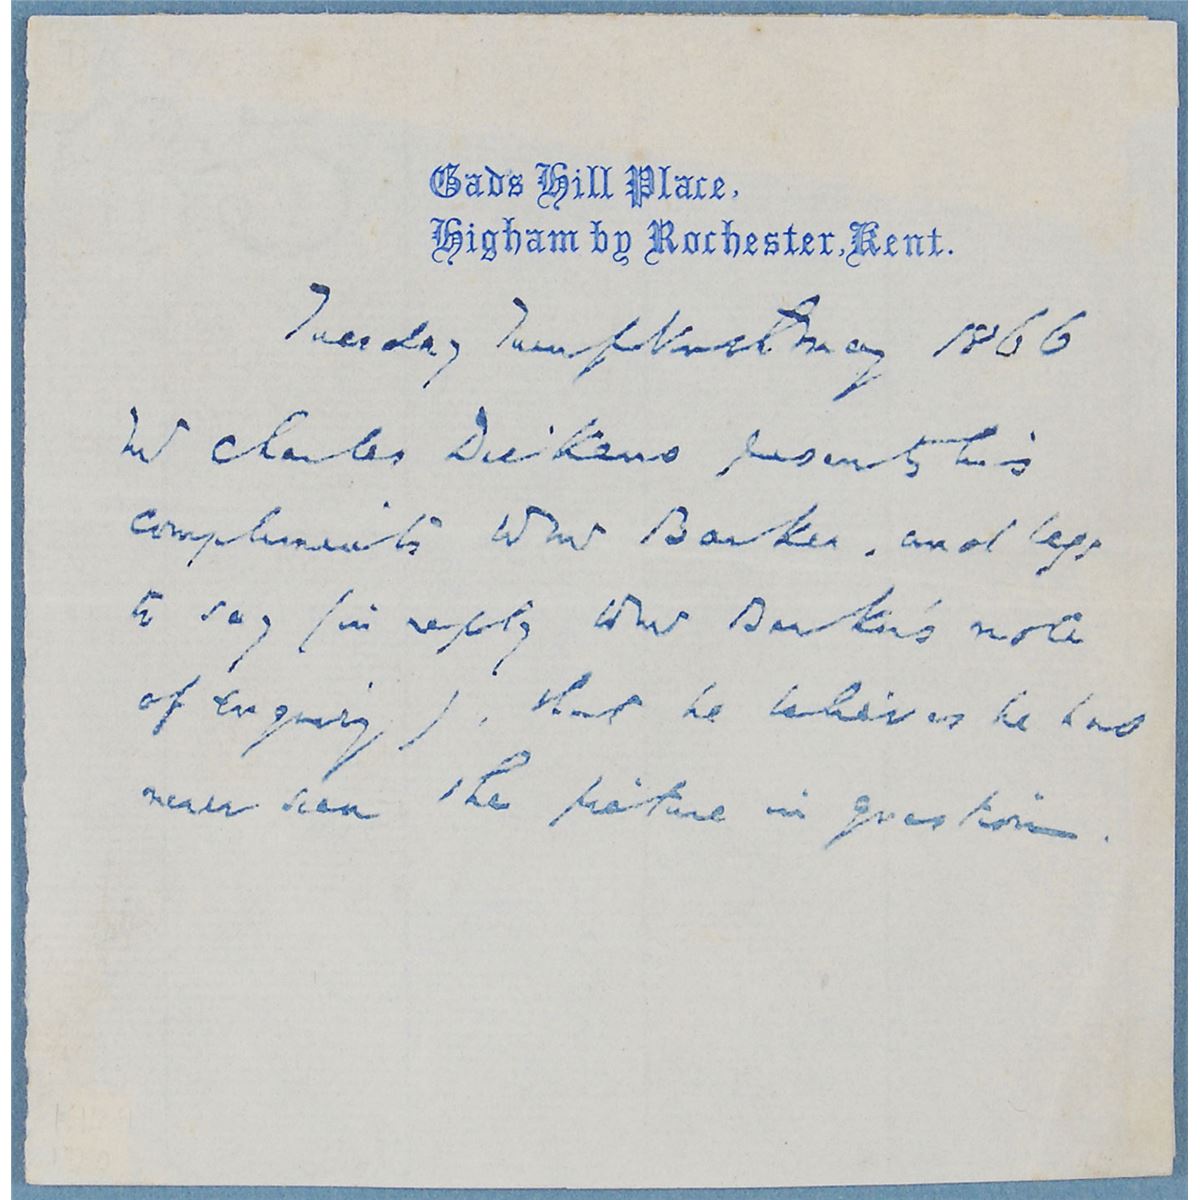 Gads Hill Place,
Higham by Rochester, Kent.
Tuesday Twenty Ninth May 1866
Mr Charles Dickens presents his
compliments to Mr Barker, and begs
to say (in reply to Mr Barker's note
of enquiry), that he believes he has
never seen the picture in question.